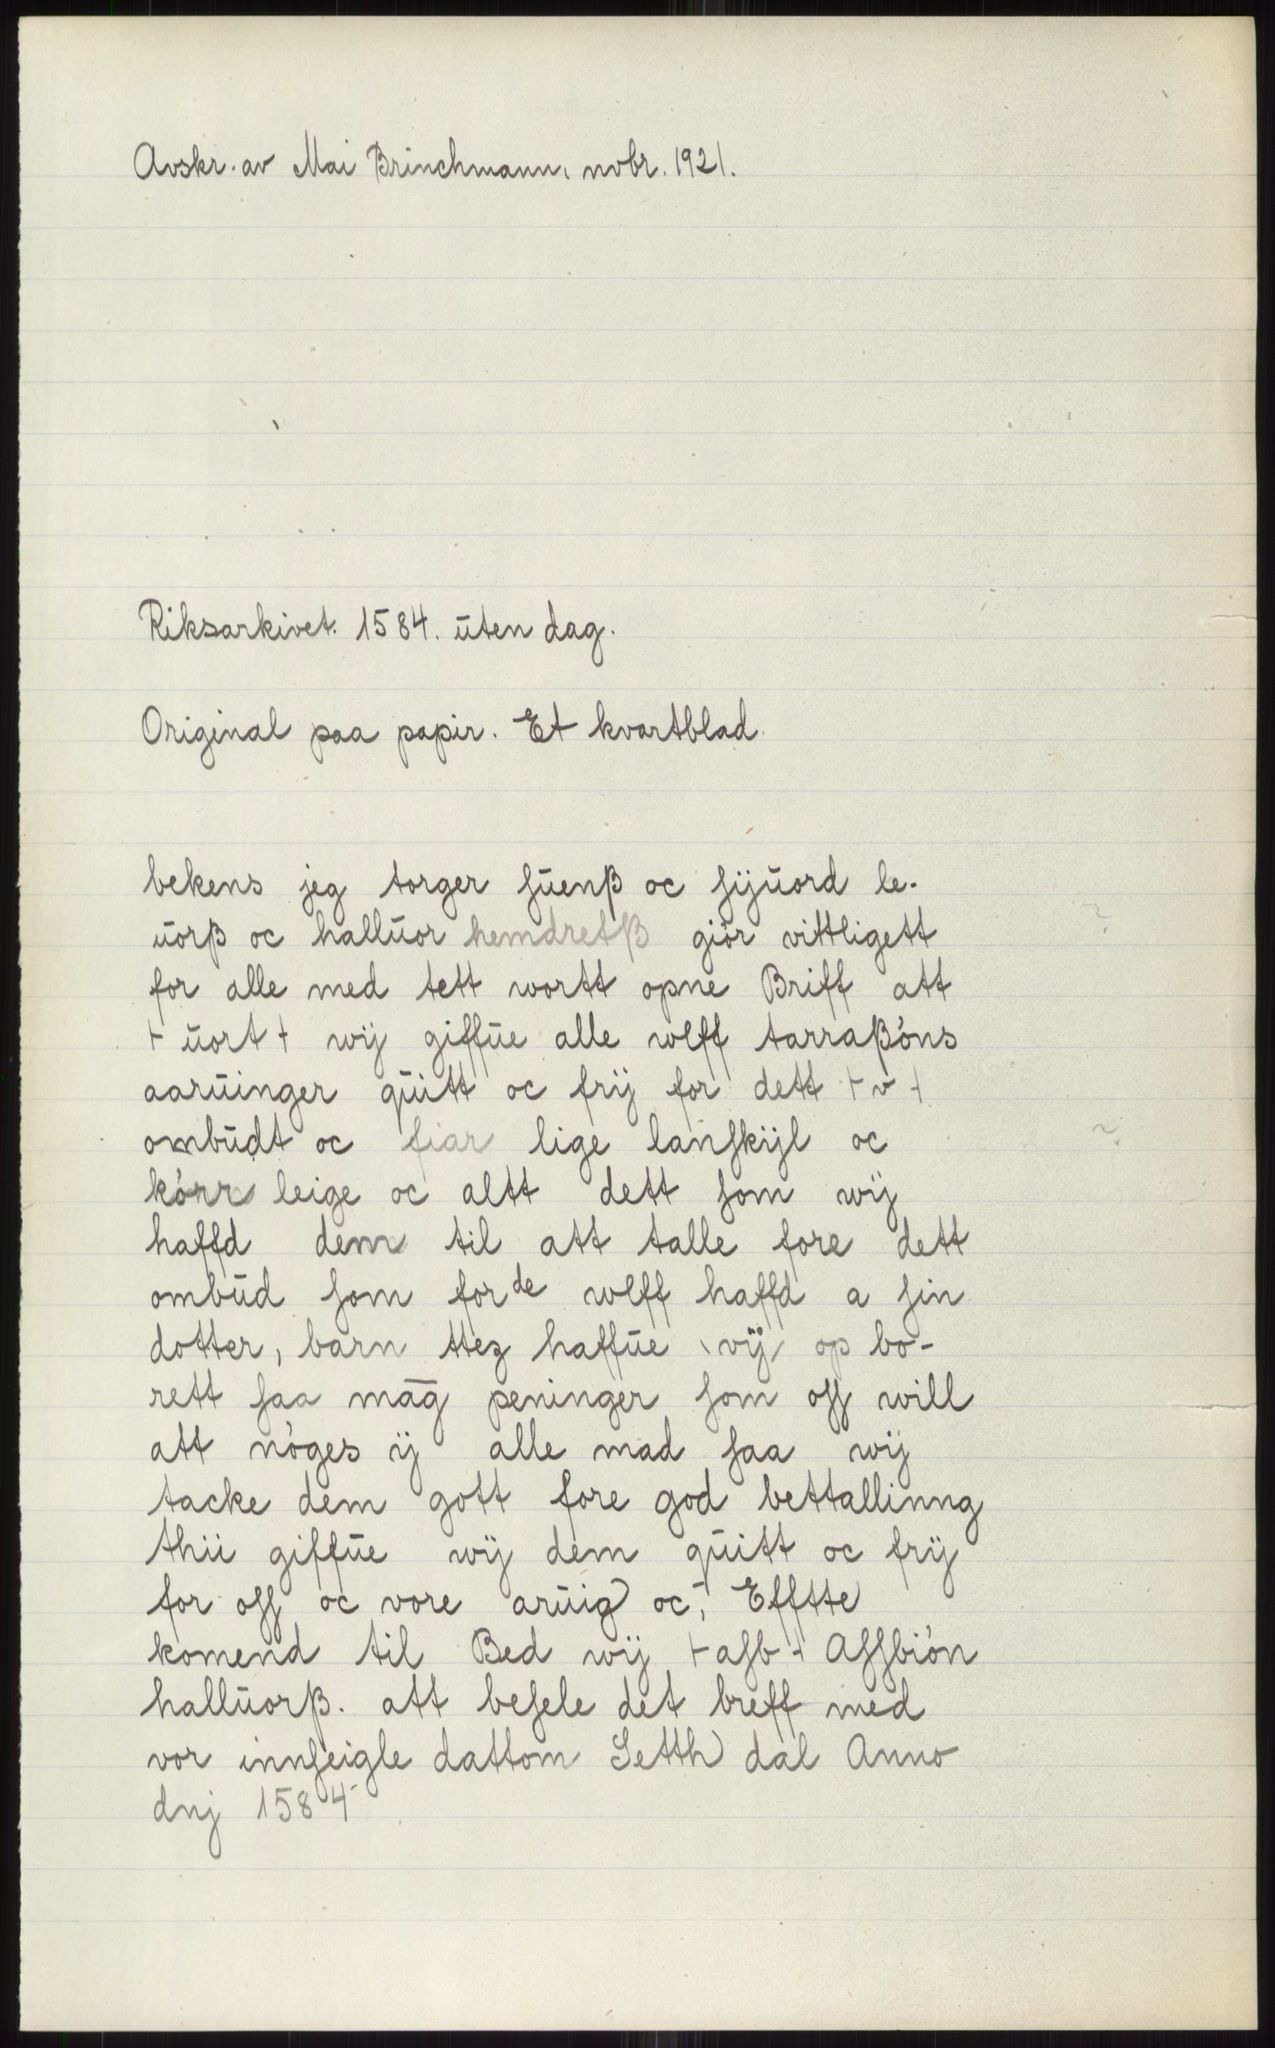 Avskr. av Mai Brinchmann, novbr. 1921.
Riksarkivet. 1584. ūten dag.
Original paa papir. Et kvartblad.
bekens jeg torger ſūenβ oc ſijūord le-
ūorβ oc hallūor hemdretβ giör vittligett
for alle med tett wortt opne Briff att
⊢ ūort ⊣ wij giffūe alle wlff tarraβóns
aarūinger qūitt oc frij for dett ⊢ v ⊣
ombūdt oc fiar lige lanſkijl oc
kórr leige oc altt dett ſom wij
haffd dem til att talle fore dett
ombūd ſom forde wlff haffd a ſin
dotter, barn ttez haffūe vij op bo-
rett ſaa māg peninger ſom oſſ will
att nóges ij alle mad ſaa wij
tacke dem gott fore god bettallinng
thii giffūe wij dem qūitt oc frij
for oſſ oc vore arūig oc, Efftte
komend til Bed wij ⊢ aſb ⊣ Aſſbión
hallūorβ. att beſele det breff med
vor innſeigle dattom Setth dal Anno
dnj 1584